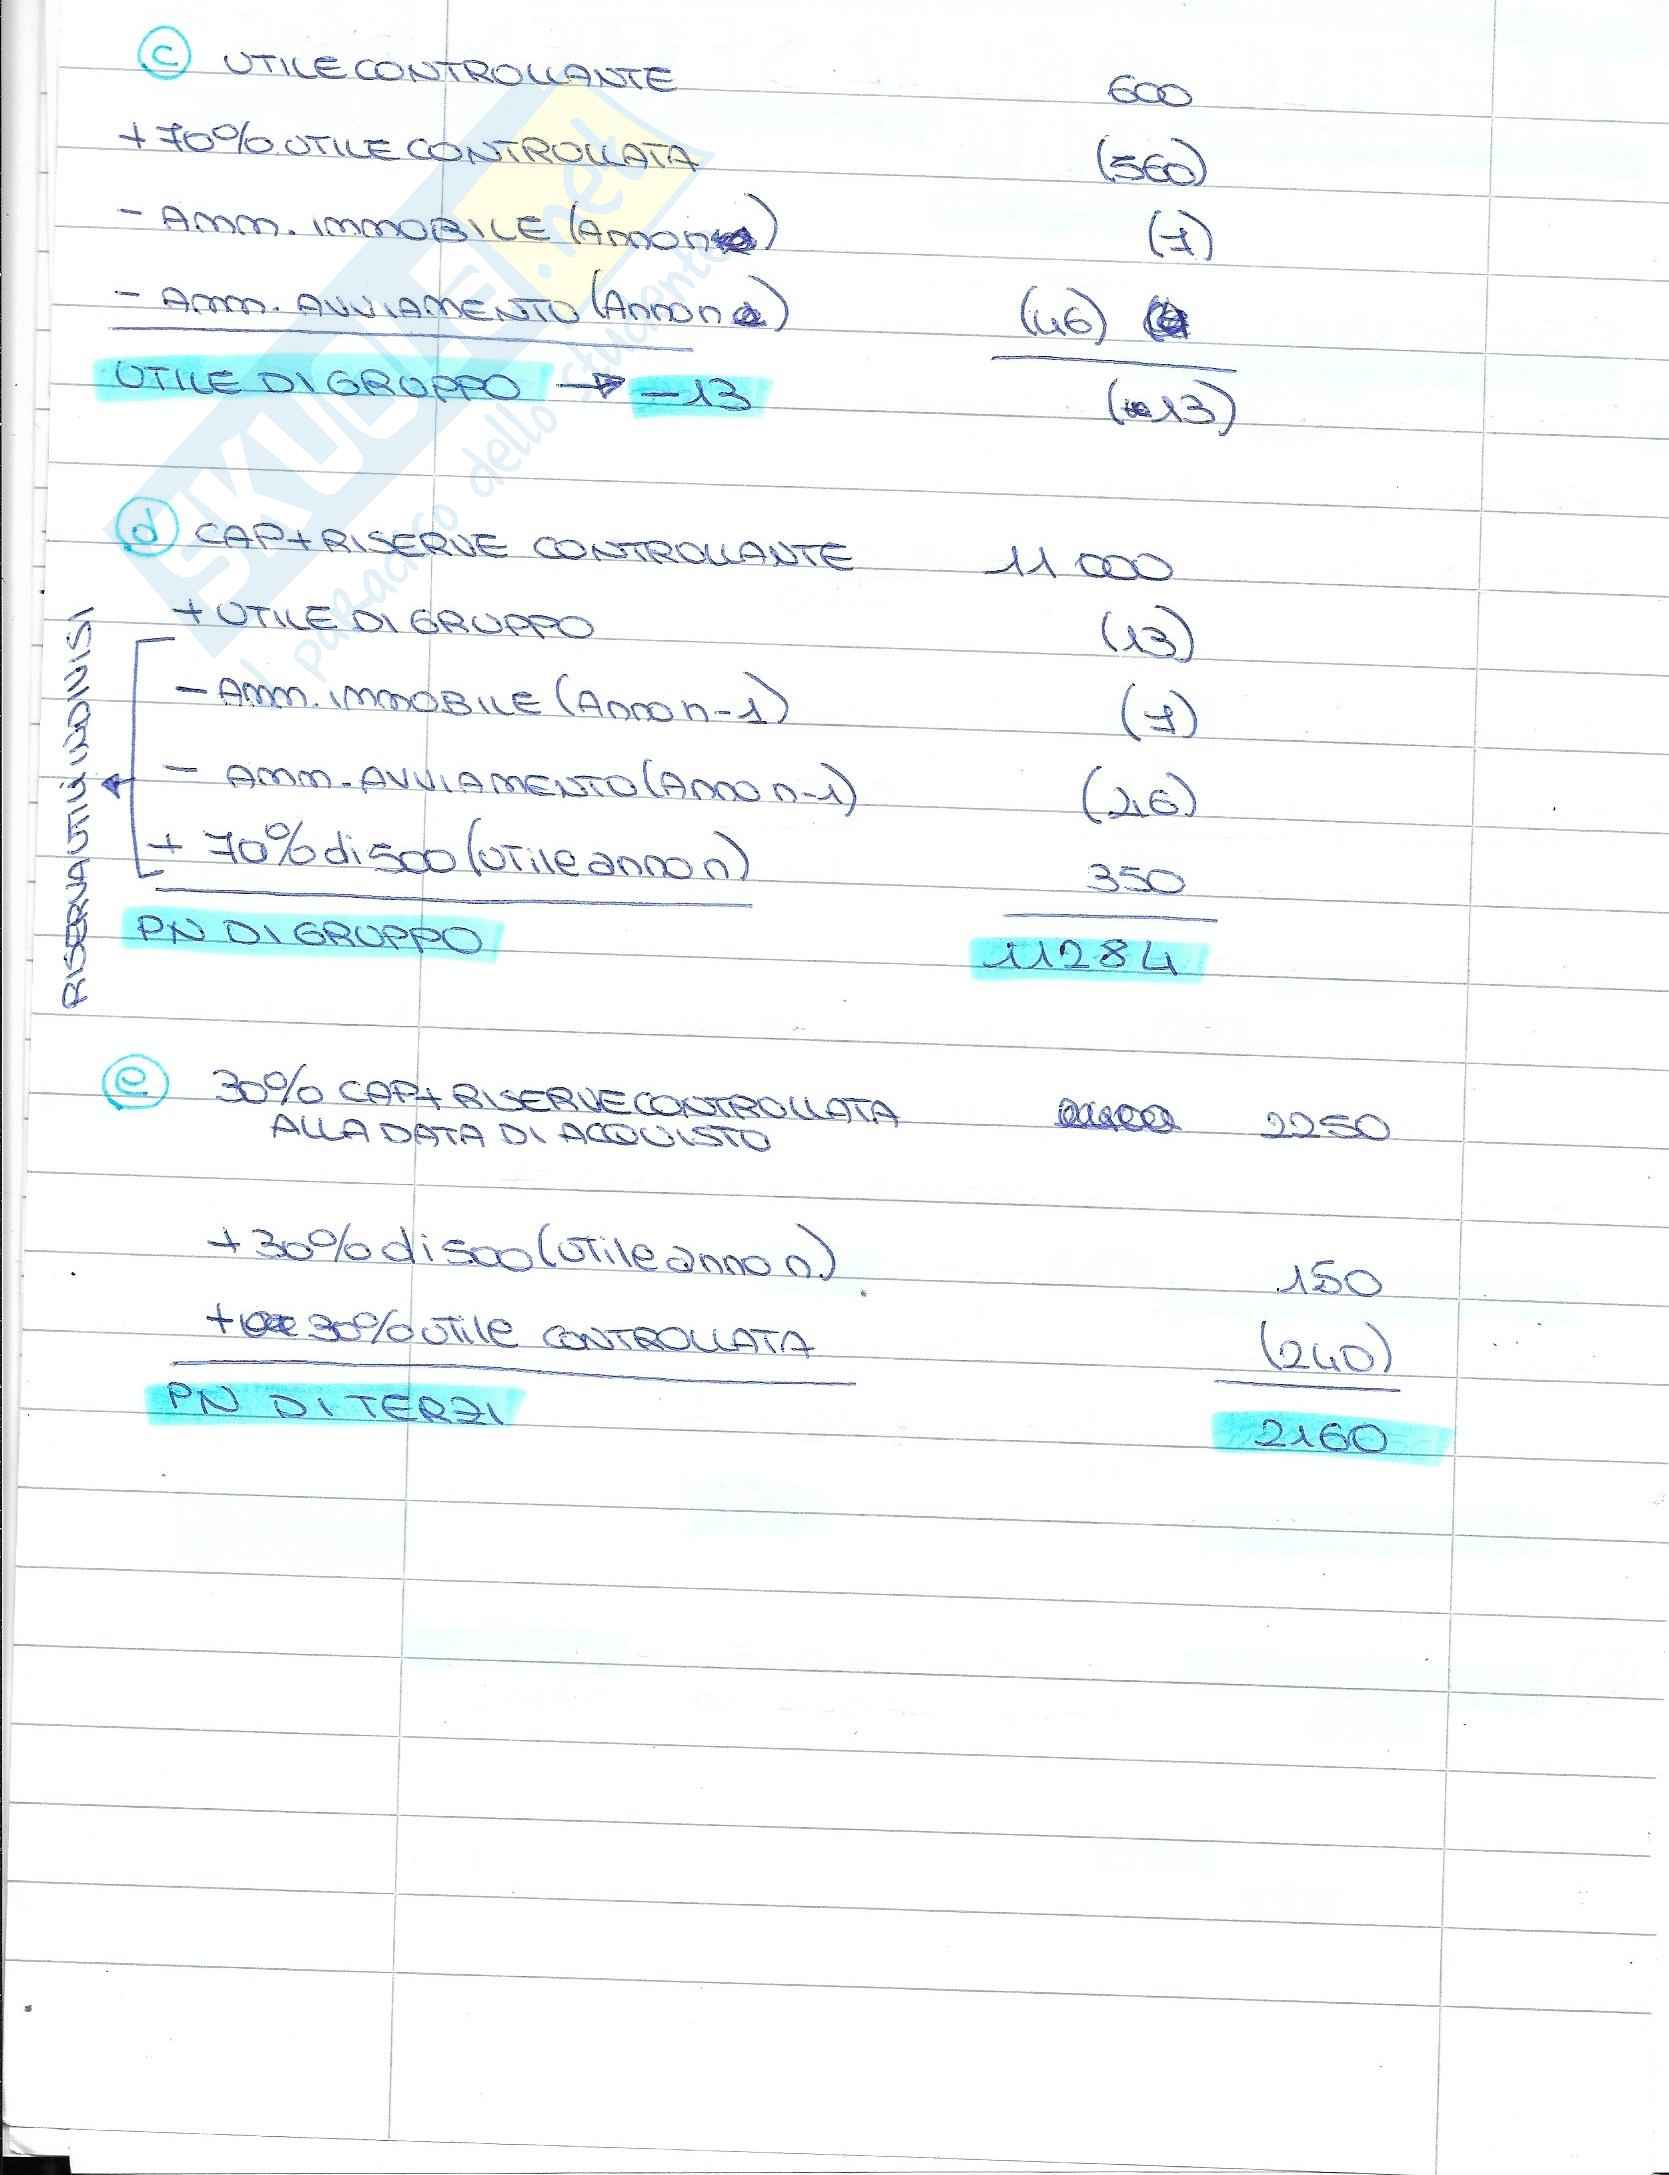 c UTILE CONTROLLANTE 600
+ 70% UTILE CONTROLLATA (560)
- AMM. IMMOBILE (Anno n) (7)
- AMM. AVVIAMENTO (Anno n) (46)
UTILE DI GRUPPO → -13 (13)
d CAP + RISERVE CONTROLLANTE 11 000
+ UTILE DI GRUPPO (13)
- AMM. IMMOBILE (Anno n-1) (7)
- AMM. AVVIAMENTO (Anno n-1) (46)
+ 70% di 500 (Utile anno n) 350
RISERVA UTILI INDIVISI
PN DI GRUPPO 11284
e 30% CAP + RISERVE CONTROLLATA 2250
ALLA DATA DI ACQUISTO
+ 30% di 500 (Utile anno n) 150
+ 30% Utile CONTROLLATA (240)
PN DI TERZI 2160
SKUOLA.net
il paradiso dello studente